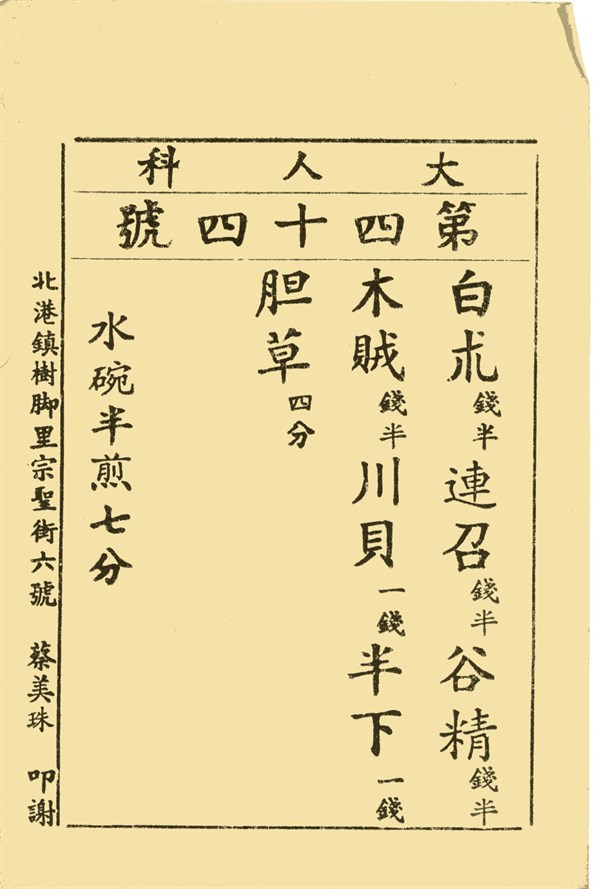 大人科
第四十四號
白朮錢半連召錢半谷精錢半
木賊錢半川貝一錢半下一錢
胆草四分
水碗半煎七分
北港鎮樹脚里宗聖街六號 蔡美珠 叩謝